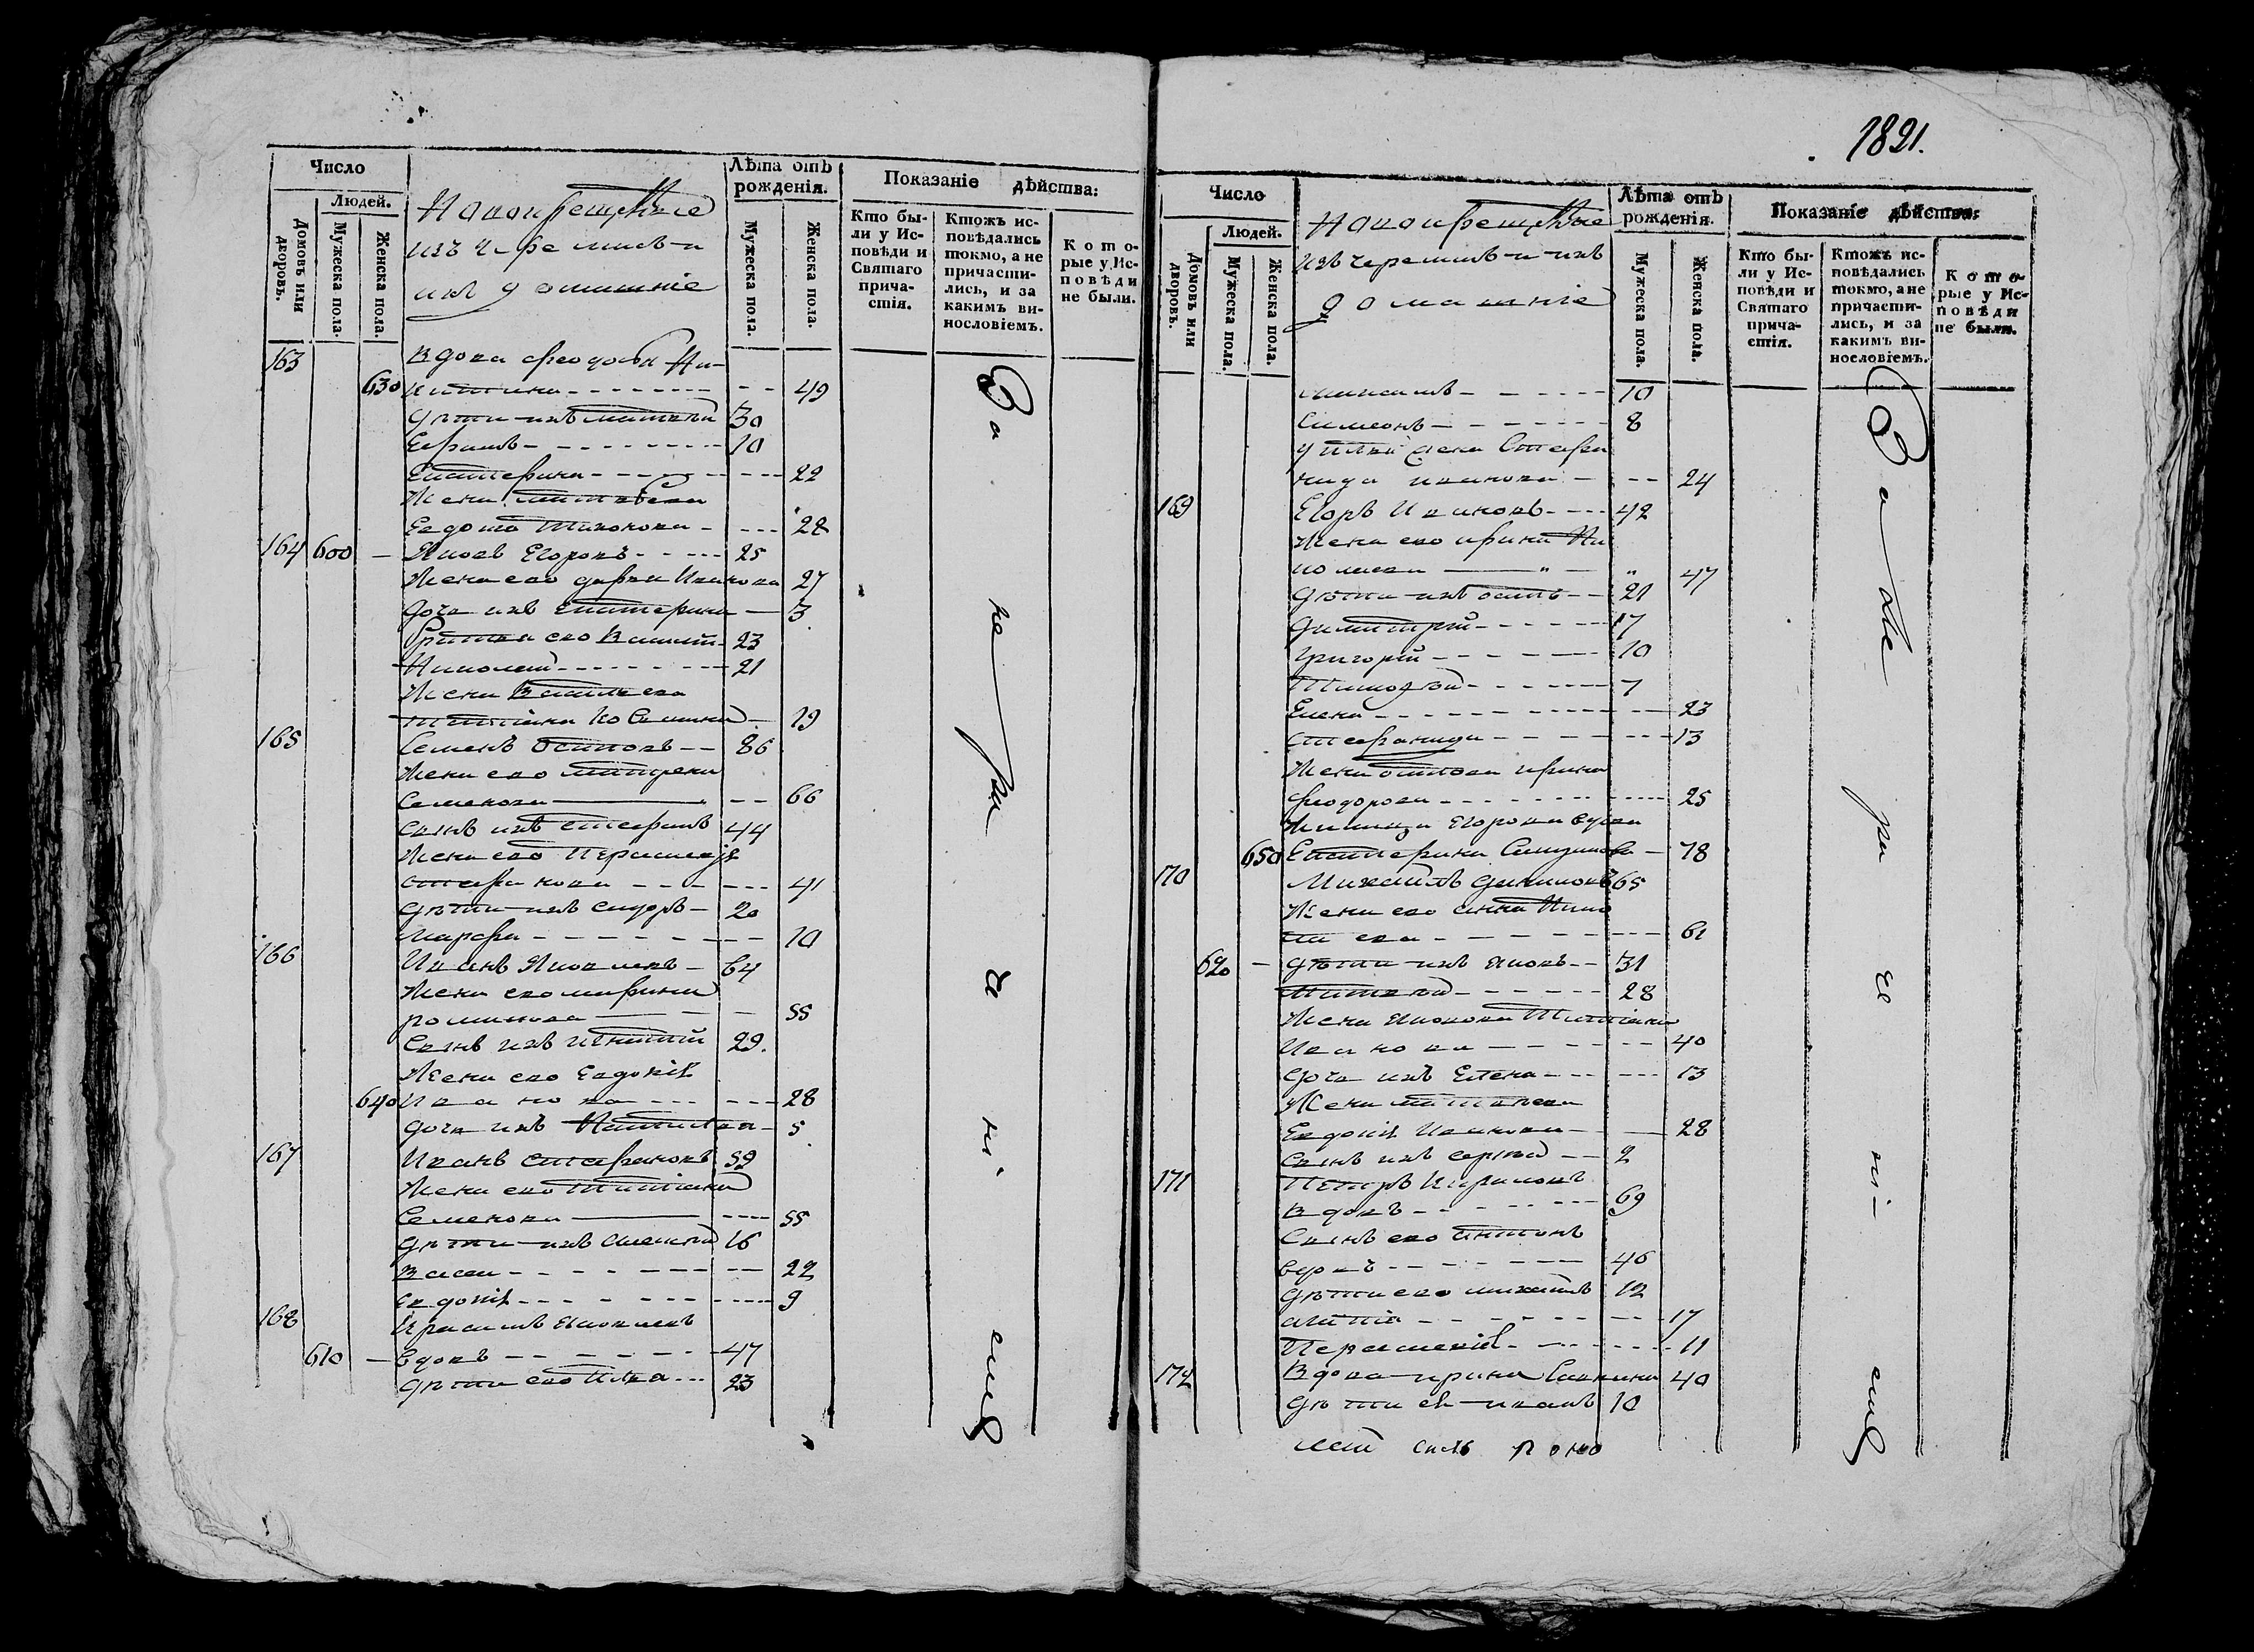 1821.
Число
Людей.
Домовъ или дворовъ.
Мужеска пола.
Женска пола.
Новокрещенные
изъ черемисъ и
ихъ домашніе
Лѣта отъ рожденія.
Мужеска пола.
Женска пола.
Показаніе дѣйства:
Кто были у Исповѣди и Святаго причастія.
Ктожъ исповѣдались токмо, а не причастились, и за какимъ винословіемъ.
Которые у Исповѣди не были.
163 Вдова Феодосья Ни-
630 китина 49
дѣти ихъ Матвѣй 30
Ефимъ 10
Екатерина 22
Жена Матвѣева
Евдокія 28
164 600 Яковъ Егоровъ 25
Жена ево Дарья Иванова 27
дочь ихъ Екатерина 3
Братья ево Василій 23
Николай 21
Жена Васильева
Татіана 19
165 Семенъ Осиповъ 86
Жена ево Матрена
Семенова 66
Сынъ ихъ Стефанъ 44
Жена ево Параскева
Стефанова 41
дѣти ихъ Сидоръ 20
Марфа 10
166 Иванъ Яковлевъ 64
Жена ево Марина
Романова 55
Сынъ ихъ Игнатій 29.
Жена ево Евдокія
640 Иванова 28
дочь ихъ Наталья 5
167 Иванъ Стефановъ 59
Жена ево Татіана
Семенова 55
дѣти ихъ Алексѣй 16
Васса 22
Евдокія 9
168 Герасимъ Яковлевъ
610 вдовъ 47
дѣти ево Илья 23
За не ра че ні емъ
Число
Людей.
Домовъ или дворовъ.
Мужеска пола.
Женска пола.
Новокрещенные
изъ черемисъ и ихъ
домашніе
Лѣта отъ рожденія.
Мужеска пола.
Женска пола.
Показаніе дѣйства:
Кто были у Исповѣди и Святаго причастія.
Ктожъ исповѣдались токмо, а не причастились, и за какимъ винословіемъ.
Которые у Исповѣди не были.
10
Симеонъ 8
у Ильи жена Стефа
нида Иванова 24
169 Егоръ Ивановъ 42
Жена ево Ирина Ни
колаева 47
дѣти ихъ Осипъ 21
Димитрій 17
Григорій 10
Тимофѣй 7
Елена 23
Стефанида 13
Жена Осипова Ирина
Феодорова 25
Егорова вдова
650 Екатерина 78
170 Михаилъ Даниловъ 65
Жена ево Анна Нико
лаева 61
620 дѣти ихъ Яковъ 31
Матвѣй 28
Жена Яковова Татіана
Иванова 40
дочь ихъ Елена 13
Жена Матвѣева
Евдокія Иванова 28
Сынъ ихъ Сергѣй 2
171 Петръ Кириловъ
вдовъ 69
Сынъ ево Антонъ
вдовъ 46
дѣти ево Михаилъ 12
17
Параскевія 11
172 Вдова Ирина Саввина 40
дѣти ея Иванъ 10
За не ра че ні емъ